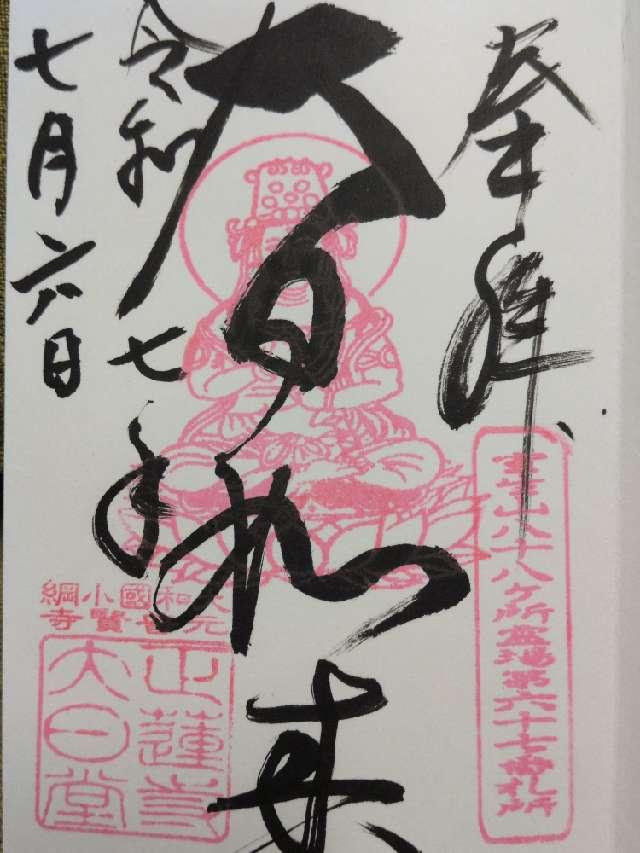 奉拝
室生山八十八ヶ所霊場第六十七番札所
大日如来
令和七年
七月六日
大和國小綱
元普賢寺
正蓮寺
大日堂